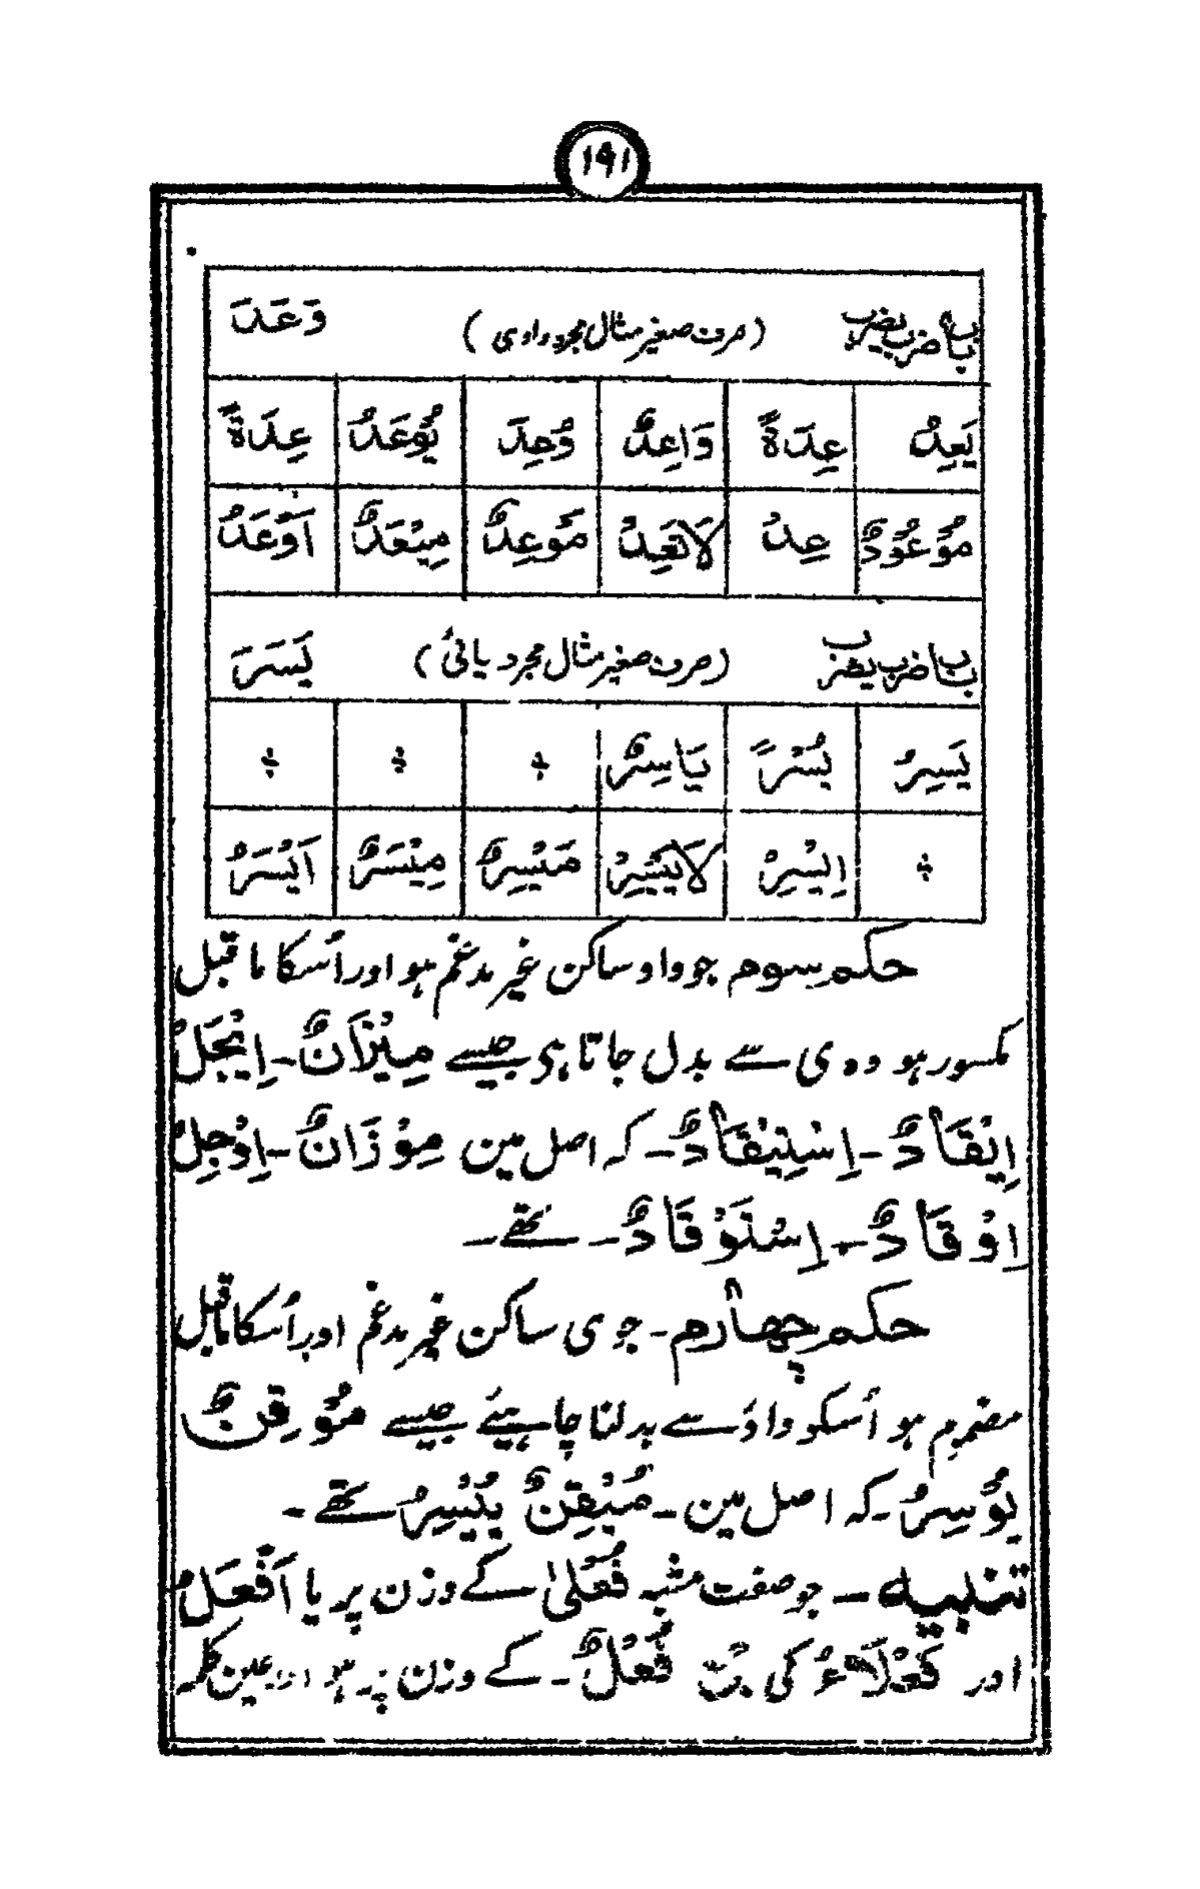 ۱۹۱
باب ضرب یضرب (صرف صغیر مثال مجرد واوی) وَعَدَ
یَعِدُ عِدَةً وَاعِدٌ وُعِدَ یُوْعَدُ عِدَةً
مَوْعُوْدٌ عِدْ لَاتَعِدْ مَوْعِدٌ مِیْعَدٌ اَوْعَدُ
باب ضرب یضرب (صرف صغیر مثال مجرد یائی) یَسَرَ
یَسِرُ یُسْرًا یَاسِرٌ ؞ ؞ ؞
؞ اِیْسِرْ لَایَیْسِرْ مَیْسِرٌ مِیْسَرٌ اَیْسَرُ
حکم سوم جو واو ساکن غیر مدغم ہو اور اُسکا ما قبل
مکسور ہو وہ ی سے بدل جاتا ہی جیسے مِیْزَانٌ۔اِیْجَلْ
اِیْقَادٌ۔اِسْتِیْقَادٌ۔ کہ اصل مین مِوْزَانٌ۔اِوْجِلْ
اِوْقَادٌ۔اِسْتَوْقَادٌ۔ تھے۔
حکم چہارم۔ جو ی ساکن غیر مدغم اور اُسکا ماقبل
مضموم ہو اُسکو واؤ سے بدلنا چاہیئے جیسے مُوْقِنٌ
یُوْسِرُ۔کہ اصل مین۔مُیْقِنٌ یُیْسِرُ تھے۔
تنبیہ۔ جو صفت مشبہ فُعْلیٰ کے وزن پر یا اَفْعَلُ
اور فَعْلَاءُ کی فُعْلٌ۔ کے وزن پر ہو اور عین کلمہ